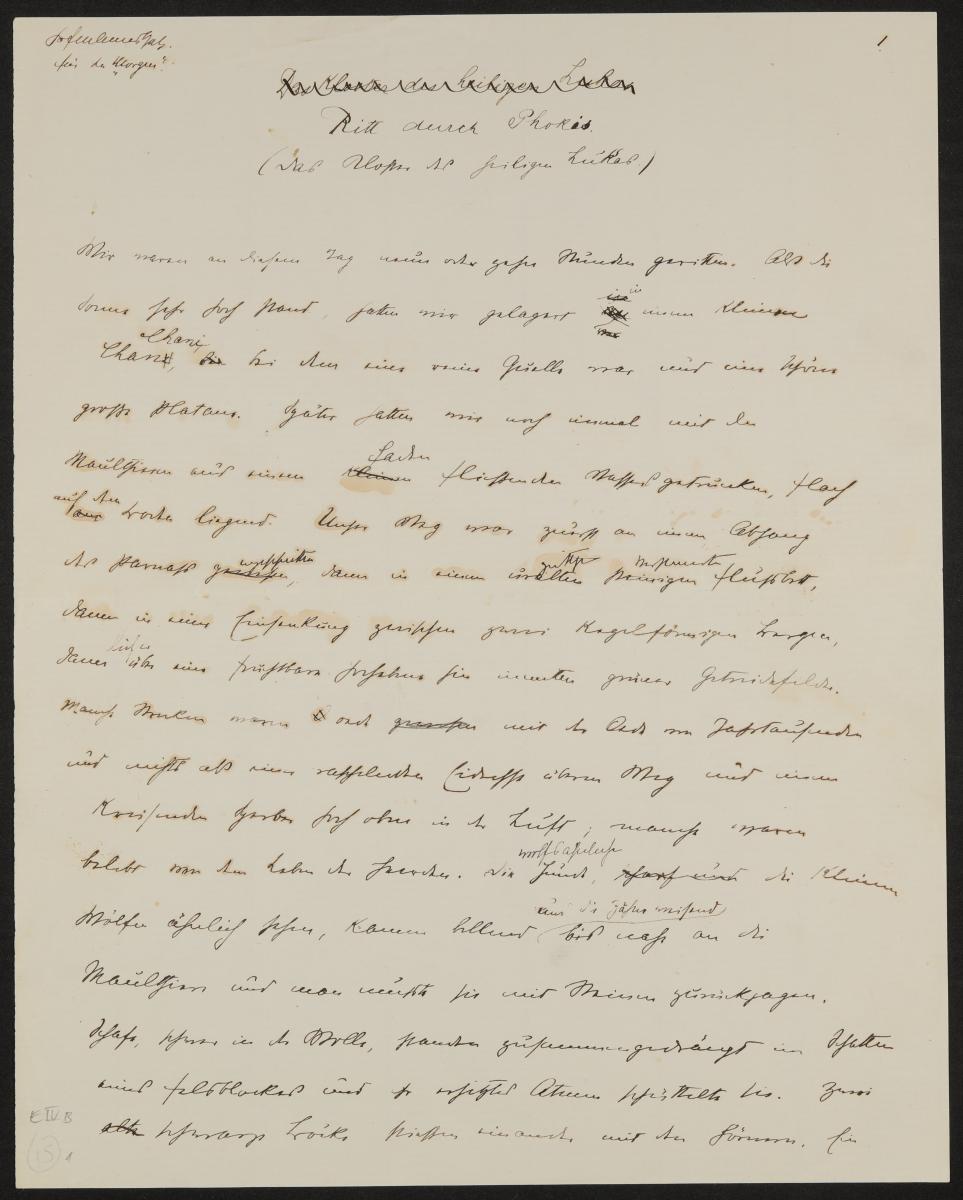 Hofmannsthal.
für den "Morgen".
1
Das Kloster des heiligen Lukas
Ritt durch Phokis.
(Das Kloster des heiligen Lukas.)
Wir waren an diesem Tag neun oder zehn Stunden geritten. Als die
Sonne sehr hoch stand, hatten wir gelagert in einem kleinen
Chani
Chani, bei dem eine reine Quelle war und eine schöne
große Platane. Später hatten wir noch einmal mit den
Faden
Maulthieren aus einem kleinen fließenden Wassers getrunken, flach
auf dem
am Boden liegend. Unser Weg war zuerst an einem Abhang
eingeschnitten
versteinerten
des Parnass gewesen, dann in einem uralten steinigen Flußbett,
dann in einer Einsenkung zwischen zwei kegelförmigen Bergen,
dann über eine fruchtbare Hochebene hin inmitten grüner Getreidefelder.
Manche Strecken waren oede mit der Oede von Jahrtausenden
und nichts als einer raschelnden Eidechse überm Weg und einem
kreisenden Sperber hoch oben in der Luft; manche waren
wolfsähnliche
belebt von dem Leben der Heerden. Die Hunde, scharf und die kleinen
und die Zähne weisend
Wölfen ähnlich sehen, kamen bellend bis nahe an die
Maulthiere und man mußte sie mit Steinen zurückjagen.
Schafe, schwer in der Wolle, standen zusammengedrängt im Schatten
eines Felsblockes und ihr erhitztes Atmen schüttelte sie. Zwei
alte schwarze Böcke stießen einander mit den Hörnern. Ein
E IV B
13
1